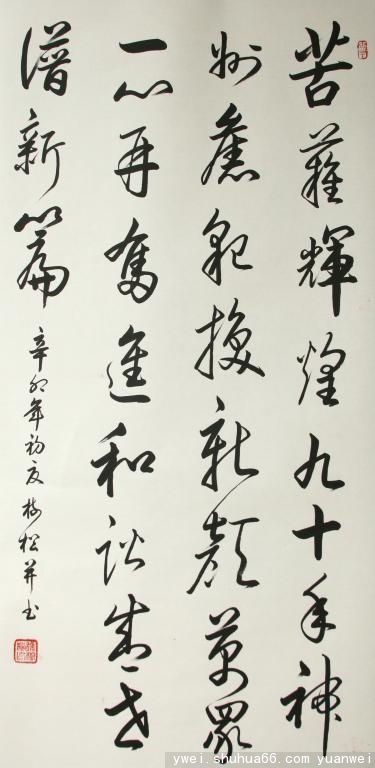 苦難輝煌九十年神
州舊貌換新顏萬眾
一心再奮進和諧盛世
譜新篇
辛卯年初夏樹松並书
ywei.shuhua66.com yuanwei